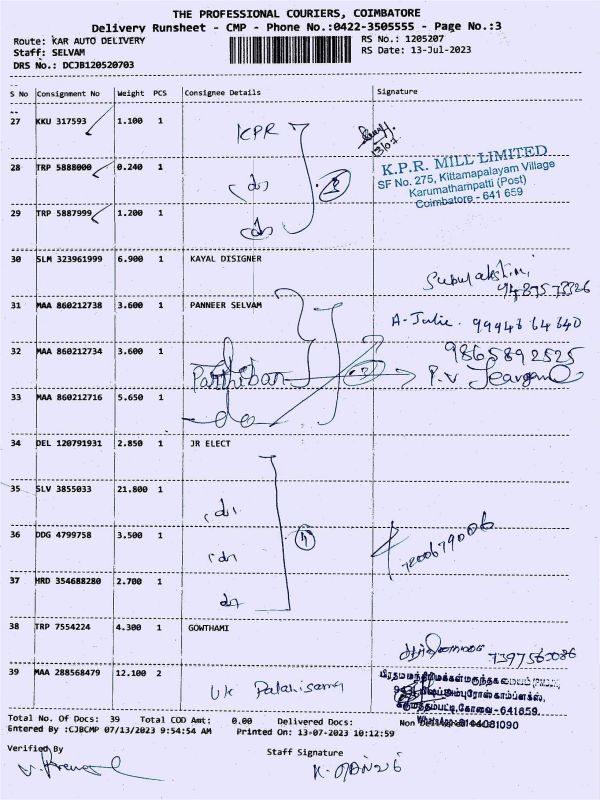 THE PROFESSIONAL COURIERS, COIMBATORE
Delivery Runsheet - CMP - Phone No.:0422-3505555 - Page No.:3
Route: KAR AUTO DELIVERY RS No.: 1205207
Staff: SELVAM RS Date: 13-Jul-2023
DRS No.: DCJB120520703
S No Consignment No Weight PCS Consignee Details Signature
27 KKU 317593 1.100 1 KPR
13/07
K.P.R. MILL LIMITED
28 TRP 5888000 0.240 1 SF No. 275, Kittampalayam Village
Karumathampatti (Post)
Coimbatore - 641 659
29 TRP 5887999 1.200 1
30 SLM 323961999 6.900 1 KAYAL DISIGNER
31 MAA 860212738 3.600 1 PANNEER SELVAM
A-Julie. 99943 64340
32 MAA 860212734 3.600 1 9865892525
Parthiban P.V
33 MAA 860212716 5.650 1
34 DEL 120791931 2.850 1 JR ELECT
35 SLV 3855033 21.800 1
36 DDG 4799758 3.500 1 4 7200679006
37 HRD 354688280 2.700 1
38 TRP 7554224 4.300 1 GOWTHAMI
7397560086
39 MAA 288568479 12.100 2 UK Palanisamy
கருமத்தம்பட்டி, கோவை - 641659.
Total No. Of Docs: 39 Total COD Amt: 0.00 Delivered Docs: Non
Entered By :CJBCMP 07/13/2023 9:54:54 AM Printed On: 13-07-2023 10:12:59
Verified By Staff Signature